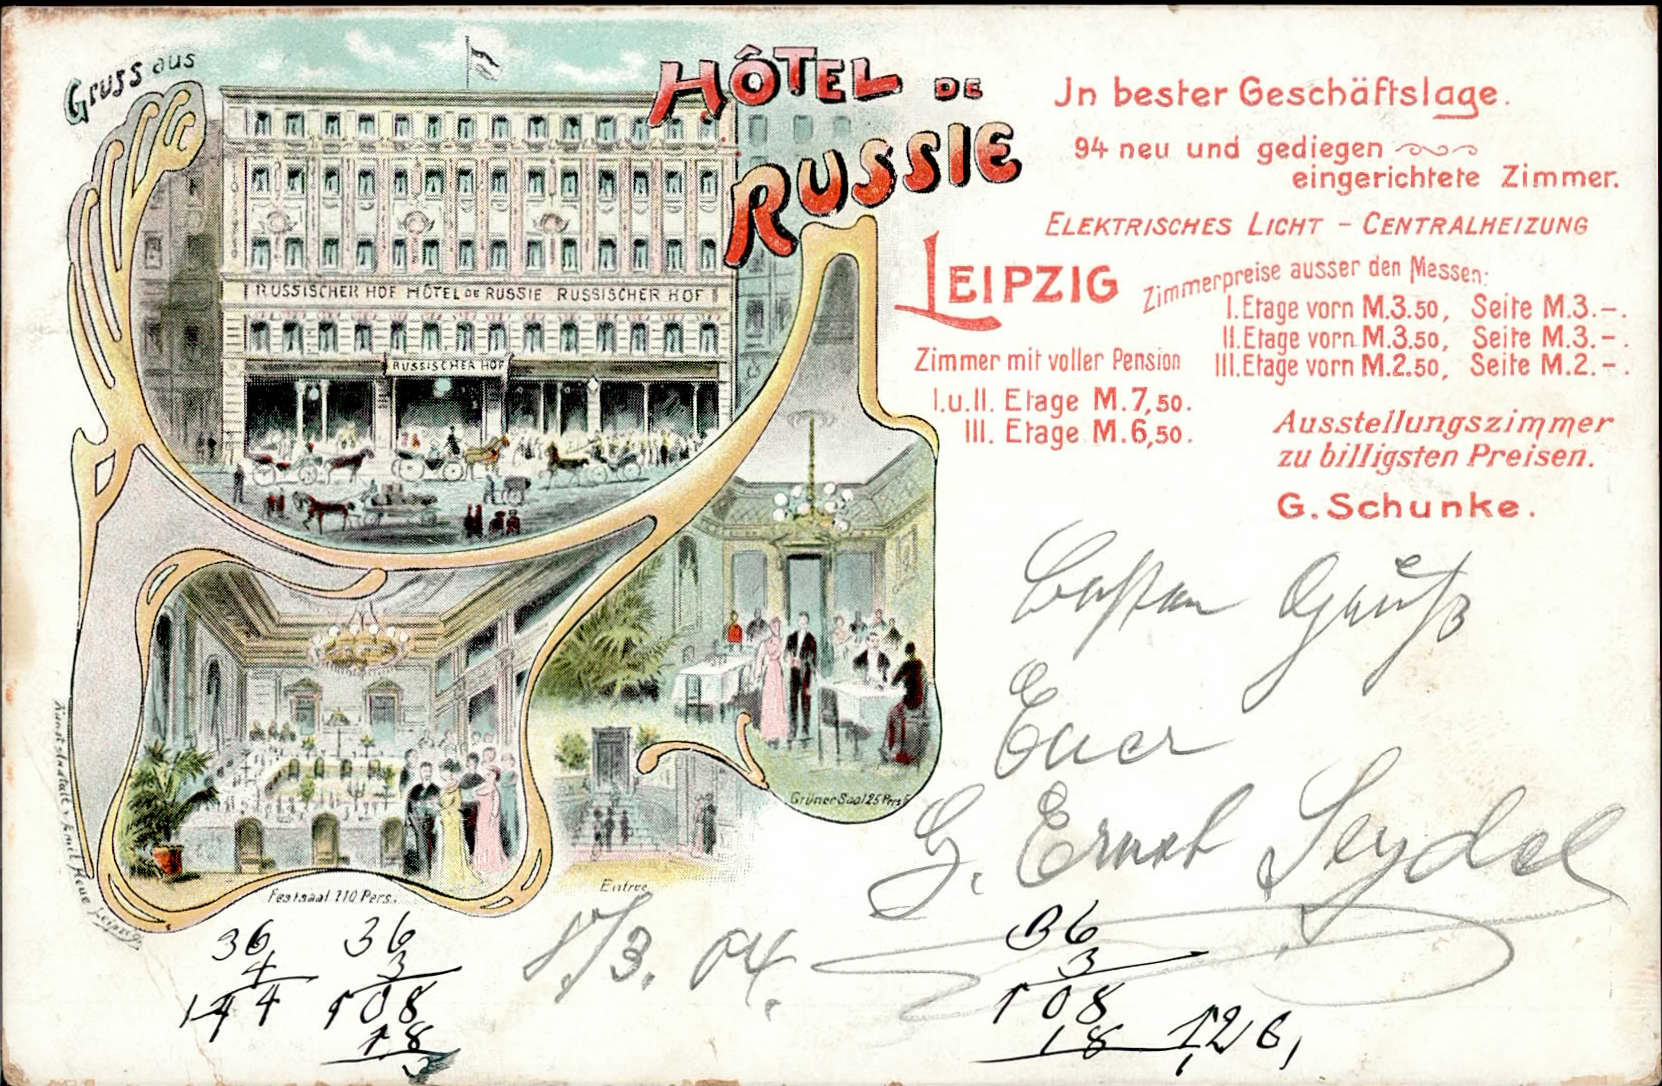 Gruss aus
HÔTEL DE
RUSSIE
LEIPZIG
RUSSISCHER HOF HÔTEL DE RUSSIE RUSSISCHER HOF
RUSSISCHER HOF
Jn bester Geschäftslage.
94 neu und gediegen
eingerichtete Zimmer.
ELEKTRISCHES LICHT - CENTRALHEIZUNG
Zimmerpreise ausser den Messen:
I.Etage vorn M.3.50, Seite M.3.-.
II.Etage vorn M.3.50, Seite M.3.-.
III.Etage vorn M.2.50, Seite M.2.-.
Zimmer mit voller Pension
I.u.II. Etage M.7,50.
III. Etage M.6,50.
Ausstellungszimmer
zu billigsten Preisen.
G. Schunke.
Besten Gruß
Euer
G. Ernst Seydel
8/3. 04.
Grüner Saal 25 Pers.
Entree
Festsaal 110 Pers.
Kunstanstalt v. Emil Heue Leipzig.
36 36
4 3
144 108
18
36
3
108
18 126,